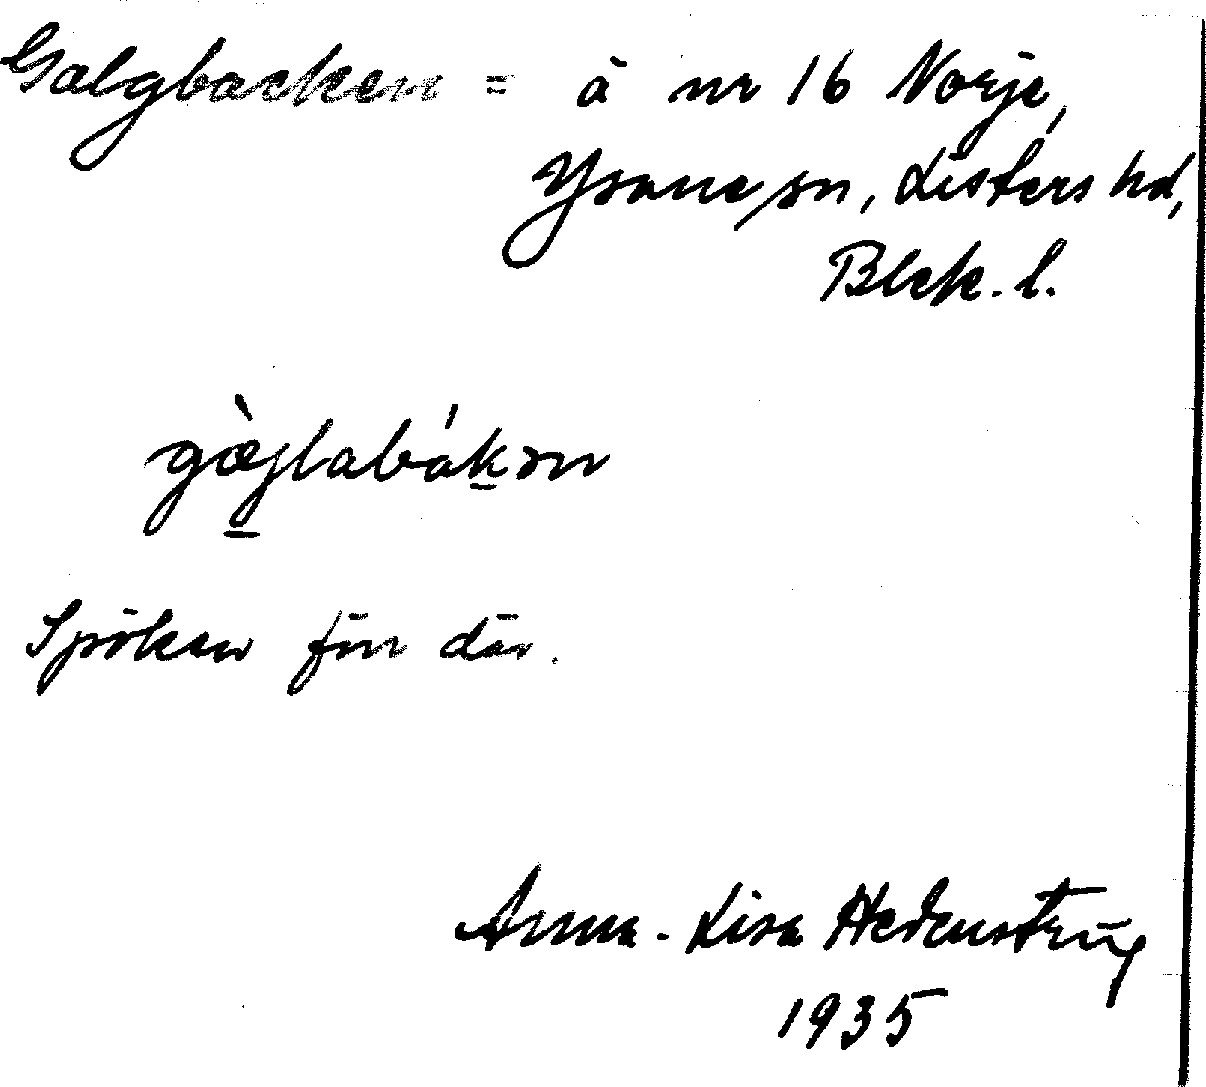 Galgbacken = å nr 16 Norje,
Ysane sn, Listers hd,
Blek. l.
gæ̀jlabákən
Spöken för där.
Anna-Lisa Hedenstierna
1935